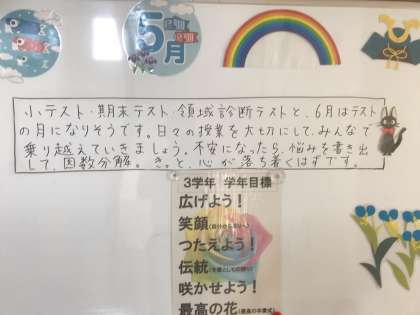 5月
小テスト・期末テスト・領域診断テストと、6月はテスト
の月になりそうです。日々の授業を大切にして、みんなで
乗り越えていきましょう。不安になったら、悩みを書き出
して、因数分解。きっと、心が落ち着くはずです。
3学年 学年目標
広げよう!
笑顔
つたえよう!
伝統
咲かせよう!
最高の花(最高の卒業式)